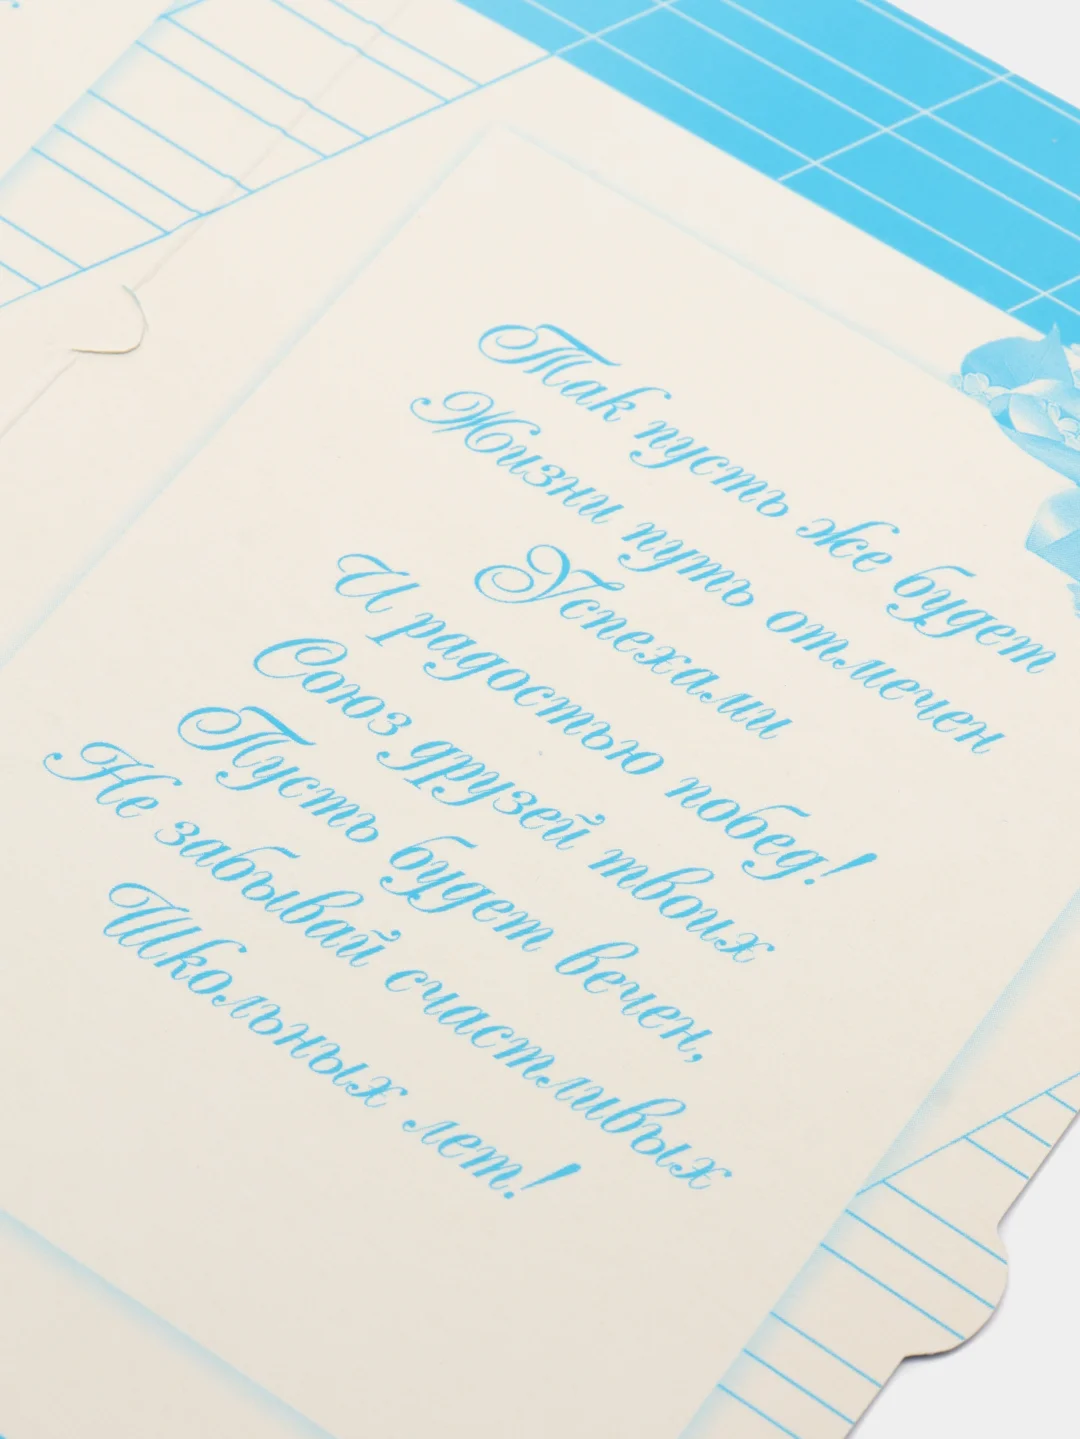 Так пусть же будет
Жизни путь отмечен
Успехами
И радостью побед!
Союз друзей твоих
Пусть будет вечен,
Не забывай счастливых
Школьных лет!